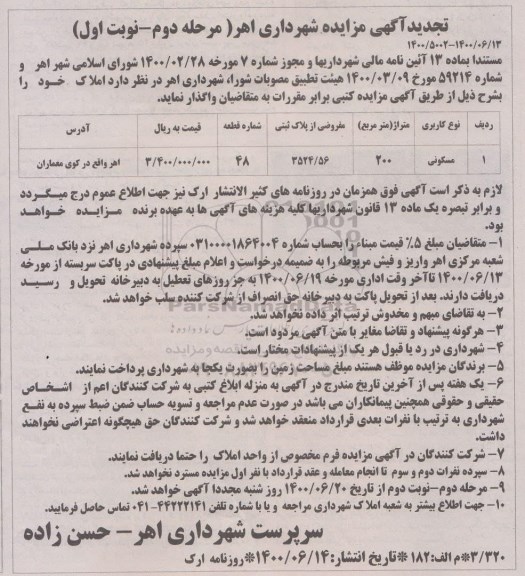 تجدیدآگهی مزایده شهرداری اهر( مرحله دوم-نوبت اول)
۱۴۰۰/۵۰۰۲-۱۴۰۰/۰۶/۱۳
مستندا بماده ۱۳ آئین نامه مالی شهرداریها و مجوز شماره ۷ مورخه ۱۴۰۰/۰۲/۲۸ شورای اسلامی شهر اهر و
شماره ۵۹۲۱۴ مورخ ۱۴۰۰/۰۳/۰۹ هیئت تطبیق مصوبات شورا، شهرداری اهر در نظر دارد املاک خود را
بشرح ذیل از طریق آگهی مزایده کتبی برابر مقررات به متقاضیان واگذار نماید.
ردیف نوع کاربری متراژ(متر مربع) مفروضی از پلاک ثبتی شماره قطعه قیمت به ریال آدرس
۱ مسکونی ۲۰۰ ۳۵۲۴/۵۶ ۴۸ ۳/۴۰۰/۰۰۰/۰۰۰ اهر واقع در کوی معماران
لازم به ذکر است آگهی فوق همزمان در روزنامه های کثیر الانتشار ارک نیز جهت اطلاع عموم درج میگردد
و برابر تبصره یک ماده ۱۳ قانون شهرداریها کلیه هزینه های آگهی ها به عهده برنده مزایده خواهد
بود.
۱- متقاضیان مبلغ ۵٪ قیمت مبناء را بحساب شماره ۰۳۱۰۰۰۱۸۶۴۰۰۴ سپرده شهرداری اهر نزد بانک ملی
شعبه مرکزی اهر واریز و فیش مربوطه را به ضمیمه درخواست و اعلام مبلغ پیشنهادی در پاکت سربسته از مورخه
۱۴۰۰/۰۶/۱۳ تاآخر وقت اداری مورخه ۱۴۰۰/۰۶/۱۹ به جز روزهای تعطیل به دبیرخانه تحویل و رسید
دریافت دارند. بعد از تحویل پاکت به دبیرخانه حق انصراف از شرکت کننده سلب خواهد شد.
۲- به تقاضای مبهم و مخدوش ترتیب اثر داده نخواهد شد.
۳- هرگونه پیشنهاد و تقاضا مغایر با متن آگهی مردود است.
۴- شهرداری در رد یا قبول هر یک از پیشنهادات مختار است.
۵- برندگان مزایده موظف هستند مبلغ مساحت زمین را بصورت یکجا به شهرداری پرداخت نمایند.
۶- یک هفته پس از آخرین تاریخ مندرج در آگهی به منزله ابلاغ کتبی به شرکت کنندگان اعم از اشخاص
حقیقی و حقوقی همچنین پیمانکاران می باشد در صورت عدم مراجعه و تسویه حساب ضمن ضبط سپرده به نفع
شهرداری به ترتیب با نفرات بعدی قرارداد منعقد خواهد شد و شرکت کنندگان حق هیچگونه اعتراضی نخواهند
داشت.
۷- شرکت کنندگان در آگهی مزایده فرم مخصوص از واحد املاک را حتما دریافت نمایند.
۸- سپرده نفرات دوم و سوم تا انجام معامله و عقد قرارداد با نفر اول مزایده مسترد نخواهد شد.
۹- مرحله دوم-نوبت دوم از تاریخ ۱۴۰۰/۰۶/۲۰ روز شنبه مجددا آگهی خواهد شد.
۱۰- جهت اطلاع بیشتر به شعبه املاک شهرداری مراجعه و یا با شماره تلفن ۴۴۲۲۲۱۴۱-۰۴۱ تماس حاصل فرمایید.
سرپرست شهرداری اهر- حسن زاده
۳/۳۲۰*م الف:۱۸۲*تاریخ انتشار:۱۴۰۰/۰۶/۱۴*روزنامه ارک
ParsNamadData